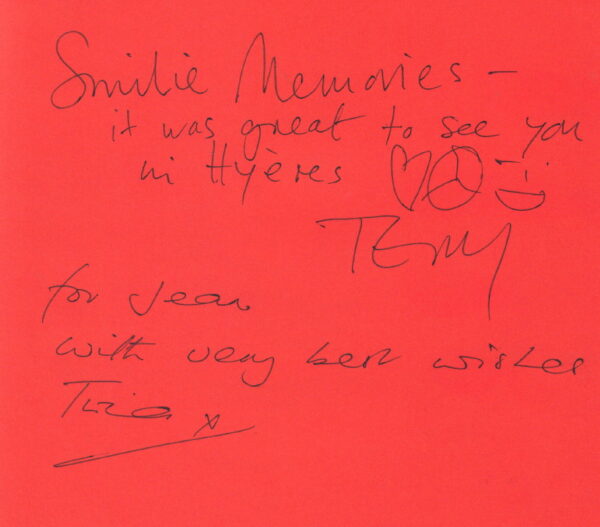 Smilie Memories –
it was great to see you
in Hyères
TERRY
for Jean
with very best wishes
Tricia x